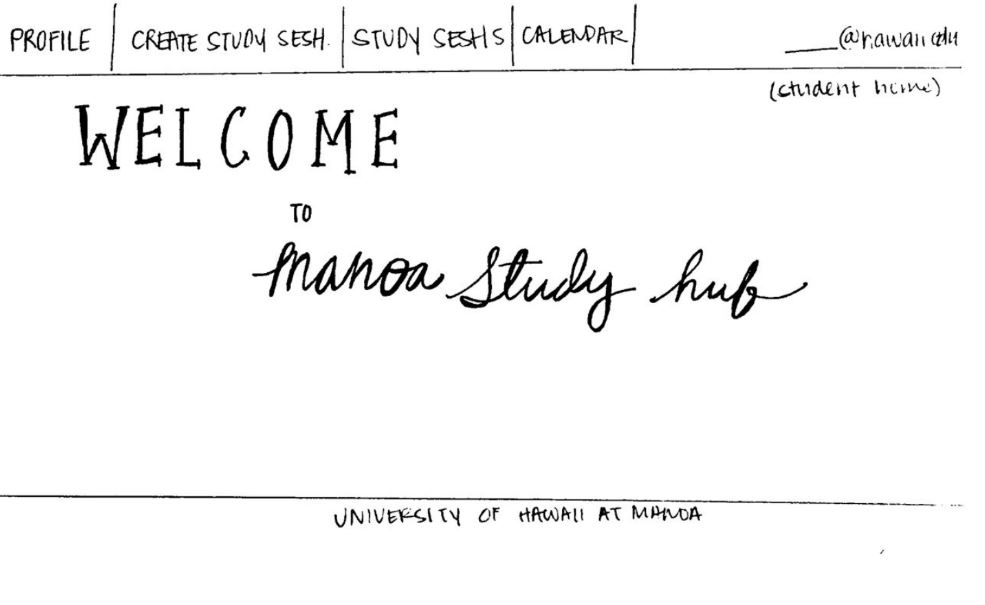 PROFILE CREATE STUDY SESH. STUDY SESHS CALENDAR ____@hawaii.edu
(student home)
WELCOME
TO
Manoa Study hub
UNIVERSITY OF HAWAII AT MANOA